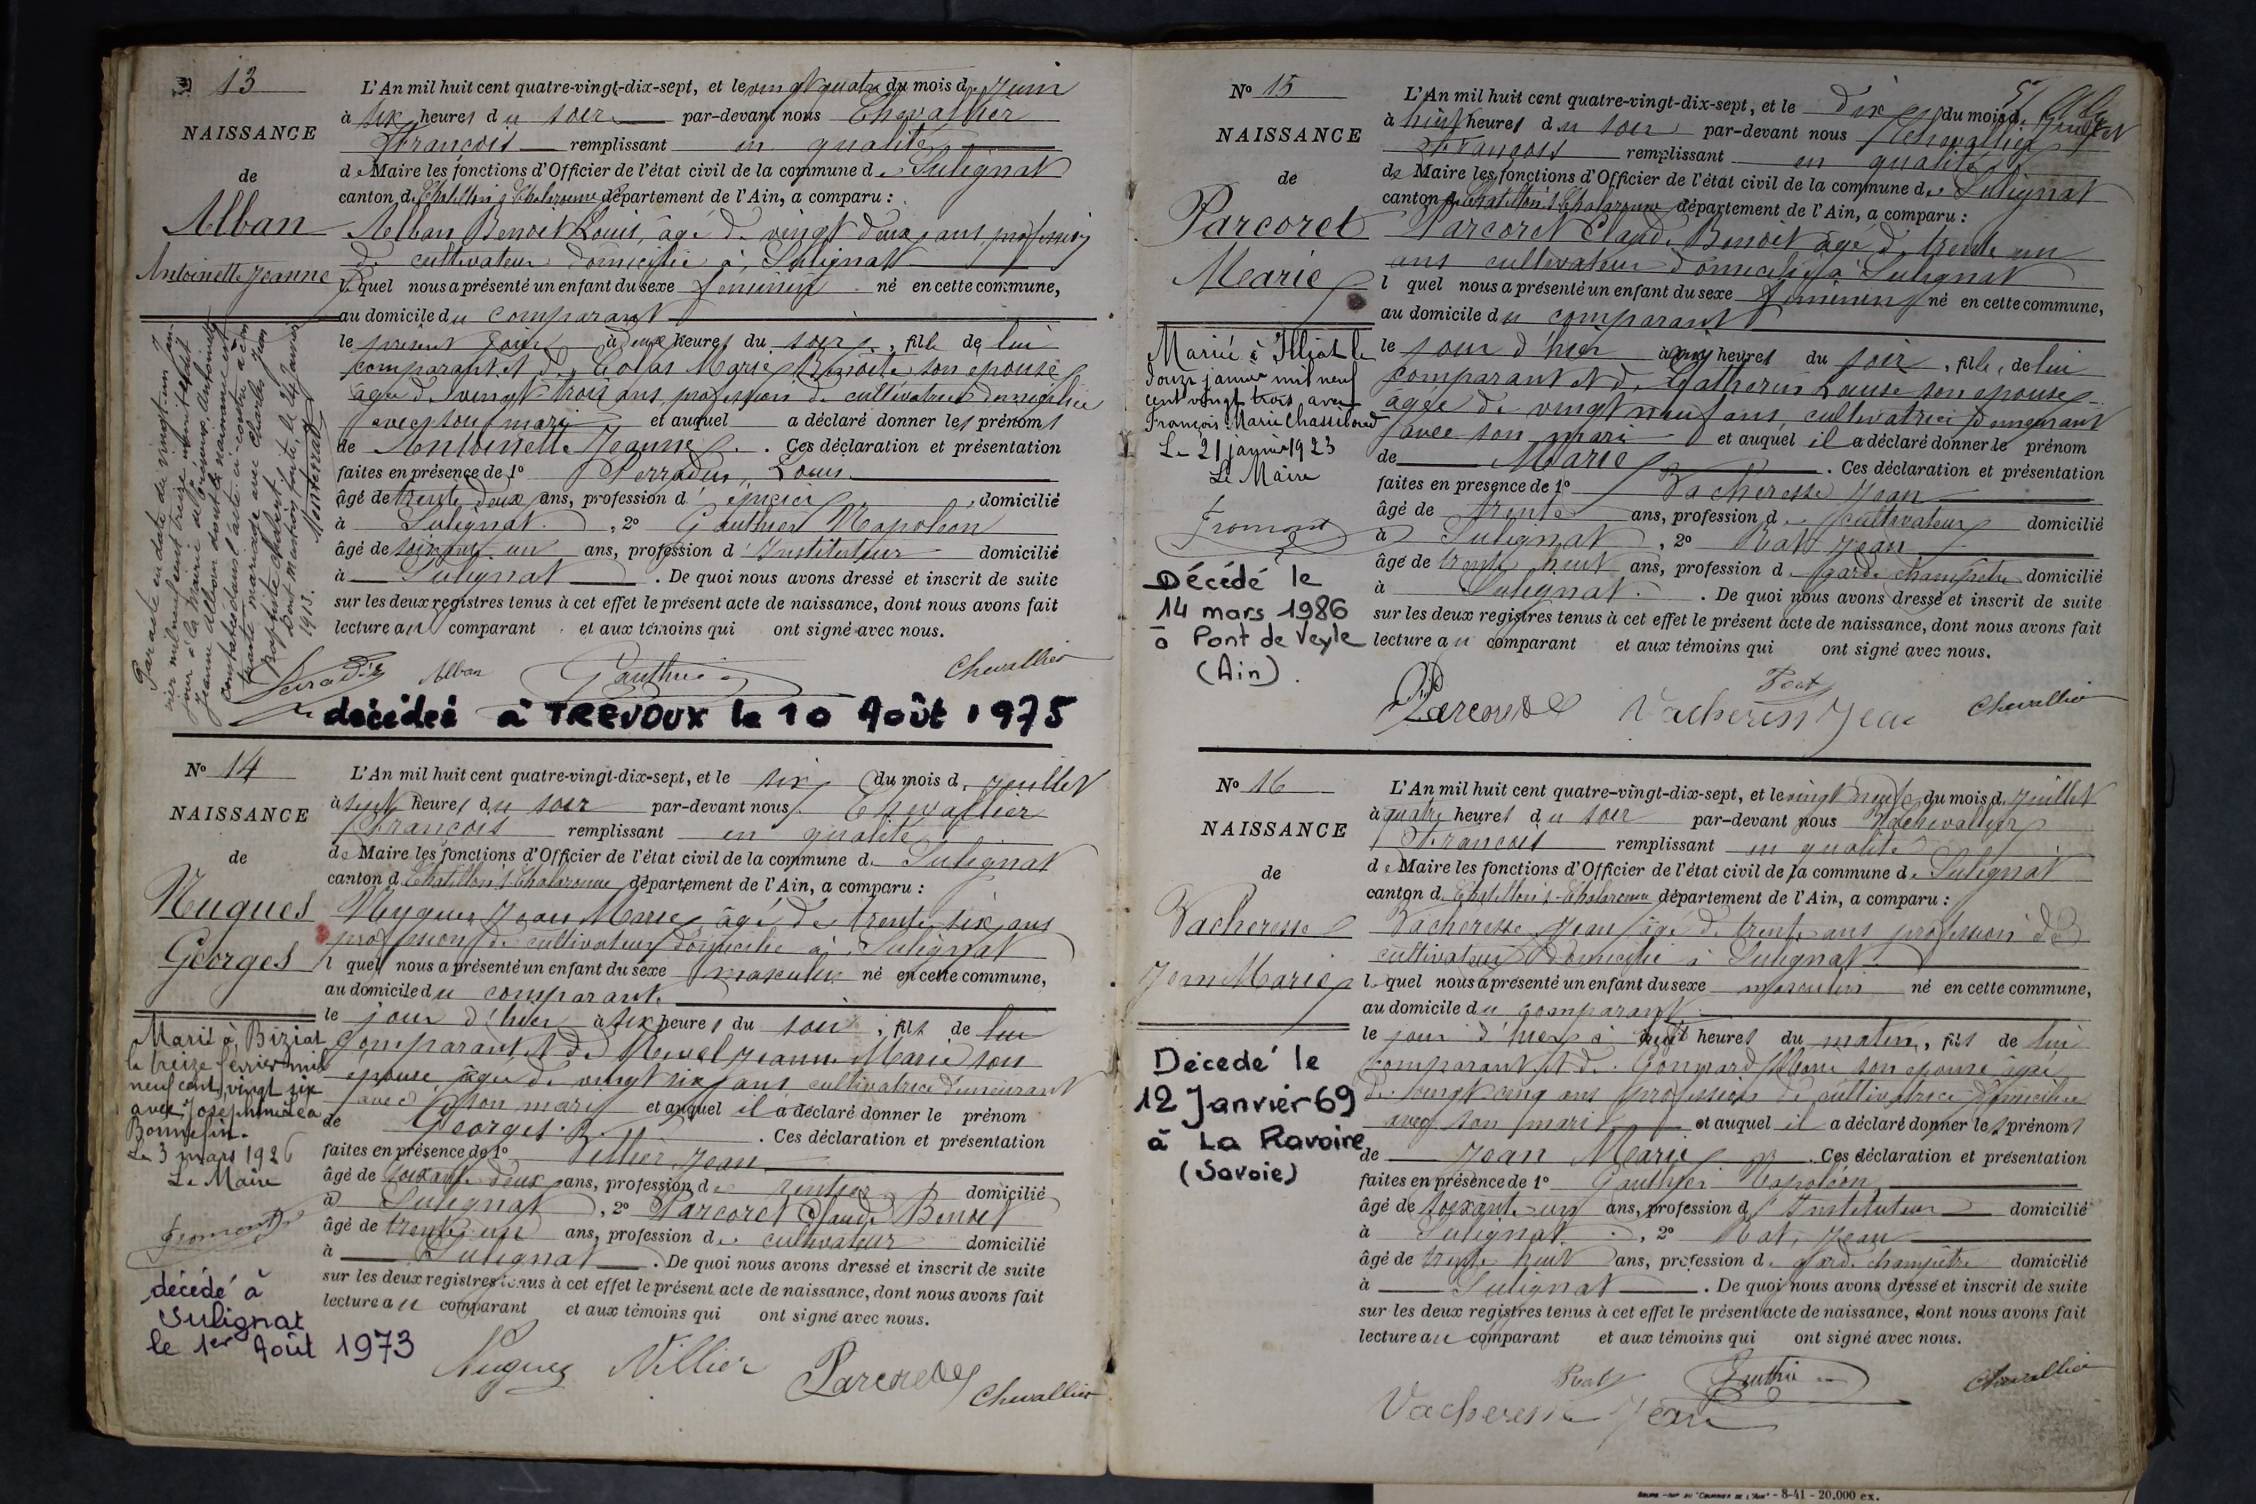 No 13
NAISSANCE
de
Alban
Antoinette Jeanne
L'An mil huit cent quatre-vingt-dix-sept, et le vingt quatre du mois de Juin
à six heures du soir par-devant nous Chevallier
François remplissant en qualité
de Maire les fonctions d'Officier de l'état civil de la commune de Sulignat
canton de Chatillon s Chalaronne département de l'Ain, a comparu :
Alban Benoit Louis, âgé de vingt deux ans, profession
de cultivateur domicilié à Sulignat
lequel nous a présenté un enfant du sexe féminin né en cette commune,
au domicile du comparant
le présent jour à deux heures du soir, fille de lui
comparant et de Colas Marie Benoite son épouse
âgée de vingt trois ans, profession de cultivatrice domiciliée
avec son mari et auquel a déclaré donner les prénoms
de Antoinette Jeanne. Ces déclaration et présentation
faites en présence de 1° Louis
âgé de trente deux ans, profession d' épicier, domicilié
à Sulignat, 2° Gauthier Napoléon
âgé de soixante un ans, profession d'Instituteur domicilié
à Sulignat. De quoi nous avons dressé et inscrit de suite
sur les deux registres tenus à cet effet le présent acte de naissance, dont nous avons fait
lecture au comparant et aux témoins qui ont signé avec nous.
Alban Gauthier Chevallier
Par acte en date du vingt un jan-
vier mil neuf cent treize inscrit le dit
jour à la mairie de Antoinette
Jeanne Alban dont la naissance est
constatée dans l'acte ci-contre a
contracté mariage avec Charles Jean
Baptiste
Dont mention faite, le 24 Janvier
1913.
décédée à TREVOUX le 10 Août 1975
No 14
NAISSANCE
de
Nugues
Georges
L'An mil huit cent quatre-vingt-dix-sept, et le six du mois de Juillet
à sept heures du soir par-devant nous Chevallier
François remplissant en qualité
de Maire les fonctions d'Officier de l'état civil de la commune de Sulignat
canton d Chatillon s Chalaronne département de l'Ain, a comparu :
Nugues Jean Marie, âgé de trente six ans
profession de cultivateur domicilié à Sulignat
l quel nous a présenté un enfant du sexe masculin né en cette commune,
au domicile du comparant
le jour d'hier à six heures du soir, fils de lui
comparant et de Jeanne Marie son
épouse âgée de vingt six ans cultivatrice demeurant
avec son mari et auquel il a déclaré donner le prénom
de Georges. Ces déclaration et présentation
faites en présence de 1° Villier Jean
âgé de soixante deux ans, profession de rentier domicilié
à Sulignat, 2° Parcoret Claude Benoit
âgé de trente un ans, profession de cultivateur domicilié
à Sulignat. De quoi nous avons dressé et inscrit de suite
sur les deux registres tenus à cet effet le présent acte de naissance, dont nous avons fait
lecture au comparant et aux témoins qui ont signé avec nous.
Nugues Villier Parcoret Chevallier
Marié à Biziat
le treize février mil
neuf cent vingt six
avec Joséphine Léa
Bonnefin.
Le 3 mars 1926
Le Maire
Fromont
décédé à
Sulignat
le 1er Août 1973
No 15
NAISSANCE
de
Parcoret
Marie
L'An mil huit cent quatre-vingt-dix-sept, et le dix du mois de Juillet
à huit heures du soir par-devant nous Chevallier
François remplissant en qualité
de Maire les fonctions d'Officier de l'état civil de la commune de Sulignat
canton de Chatillon s Chalaronne département de l'Ain, a comparu :
Parcoret Claude Benoit âgé de trente un
ans cultivateur domicilié à Sulignat
l quel nous a présenté un enfant du sexe féminin né en cette commune,
au domicile du comparant
le jour d'hier à heures du soir, fille, de lui
comparant et de Catherin Louise son épouse
âgée de vingt neuf ans, cultivatrice demeurant
avec son mari et auquel il a déclaré donner le prénom
de Marie. Ces déclaration et présentation
faites en présence de 1° Vacheresse Jean
âgé de trente ans, profession de cultivateur domicilié
à Sulignat, 2° Rat Jean
âgé de trente huit ans, profession d garde champêtre domicilié
à Sulignat. De quoi nous avons dressé et inscrit de suite
sur les deux registres tenus à cet effet le présent acte de naissance, dont nous avons fait
lecture au comparant et aux témoins qui ont signé avec nous.
Rat
Parcoret Vacheresse Jean Chevallier
Marié à Illiat le
douze janvier mil neuf
cent vingt trois, avec
François Marie Chassiboud
Le 21 janvier 1923
Le Maire
Fromont
Décédé le
14 mars 1986
à Pont de Veyle
(Ain).
No 16
NAISSANCE
de
Vacheresse
Jean Marie
L'An mil huit cent quatre-vingt-dix-sept, et le vingt neuf du mois de Juillet
à quatre heures du soir par-devant nous Chevallier
François remplissant en qualité
de Maire les fonctions d'Officier de l'état civil de la commune de Sulignat
canton d Chatillon s Chalaronne département de l'Ain, a comparu :
Vacheresse Jean âgé de trente ans profession de
cultivateur domicilié à Sulignat
le quel nous a présenté un enfant du sexe masculin né en cette commune,
au domicile du comparant
le jour d'hier à heures du matin, fils de lui
comparant et de Gonnard Marie son épouse âgée
de vingt cinq ans profession de cultivatrice domiciliée
avec son mari et auquel il a déclaré donner les prénoms
de Jean Marie. Ces déclaration et présentation
faites en présence de 1° Gauthier Napoléon
âgé de soixante-un ans, profession d'Instituteur domicilié
à Sulignat, 2° Rat Jean
âgé de trente huit ans, profession de garde champêtre domicilié
à Sulignat. De quoi nous avons dressé et inscrit de suite
sur les deux registres tenus à cet effet le présent acte de naissance, dont nous avons fait
lecture au comparant et aux témoins qui ont signé avec nous.
Rat Gauthier Chevallier
Vacheresse Jean
Décédé le
12 Janvier 69
à La Ravoire
(Savoie)
BOURG - IMP. DU "COURRIER DE L'AIN" - 8-41 - 20.000 ex.